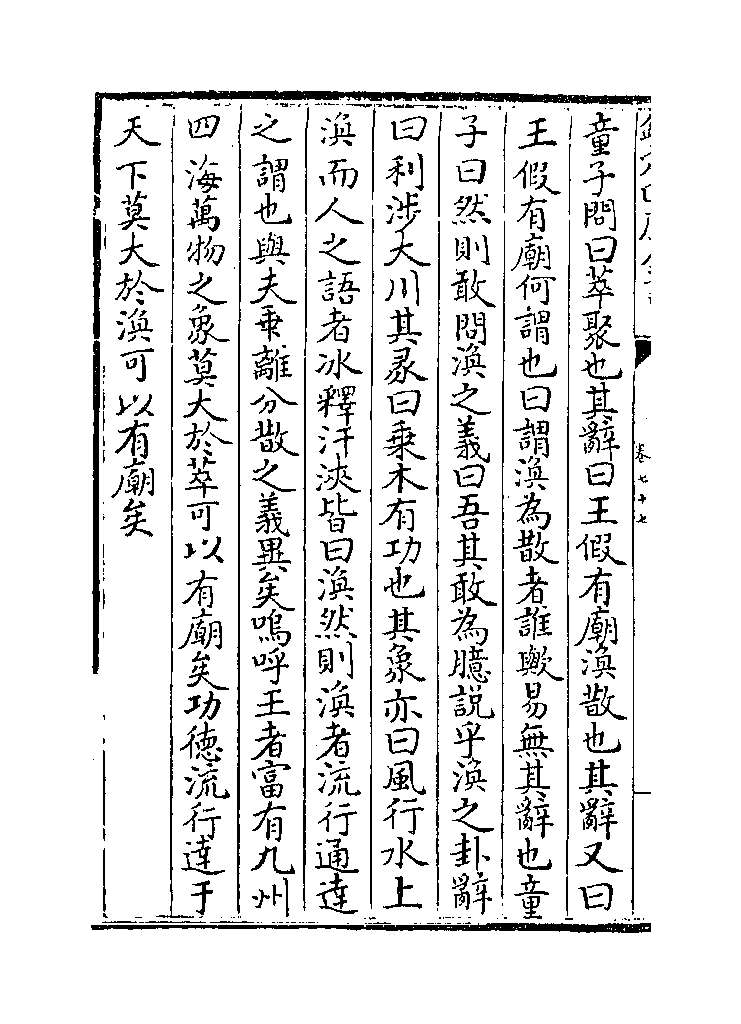 童子問曰萃聚也其辭曰王假有廟渙散也其辭又曰
王假有廟何謂也曰謂渙為散者誰歟易無其辭也童
子曰然則敢問渙之義曰吾其敢為臆說乎渙之卦辭
曰利涉大川其彖曰乗木有功也其象亦曰風行水上
渙而人之語者冰釋汗浹皆曰渙然則渙者流行通達
之謂也與夫乗離分散之義異矣嗚呼王者富有九州
四海萬物之象莫大於萃可以有廟矣功德流行達于
天下莫大於渙可以有廟矣
卷七十七